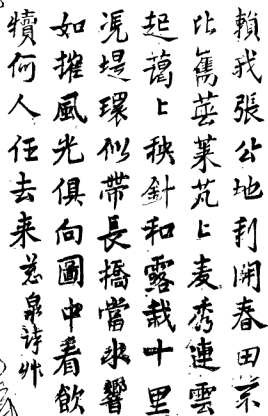 賴我張公地利開春田
比舊荒萊芃〻麥秀連雲
起藹〻秧針和露栽十里
堤環似帶長橋當水響
如摧風光俱向圖中看飲
犢何人任去来慈泉詩艸